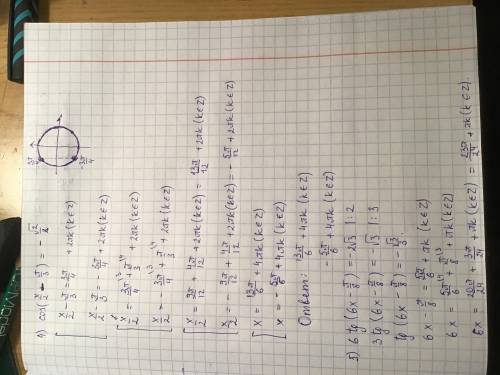 4) cos(x/2 - π/3) = -√2/2
3π/4
-3π/4
[ x/2 - π/3 = 3π/4 + 2πk (k∈Z)
x/2 - π/3 = -3π/4 + 2πk (k∈Z)
[ x/2 = 3π/4 + π/3 + 2πk (k∈Z)
x/2 = -3π/4 + π/3 + 2πk (k∈Z)
[ x/2 = 9π/12 + 4π/12 + 2πk (k∈Z) = 13π/12 + 2πk (k∈Z)
x/2 = -9π/12 + 4π/12 + 2πk (k∈Z) = -5π/12 + 2πk (k∈Z)
[ x = 13π/6 + 4πk (k∈Z)
x = -5π/6 + 4πk (k∈Z)
Ответ: 13π/6 + 4πk (k∈Z)
-5π/6 + 4πk (k∈Z)
5) 6 tg (6x - π/8) = -2√3 | : 2
3 tg (6x - π/8) = -√3 | : 3
tg (6x - π/8) = -√3/3
6x - π/8 = 5π/6 + πk (k∈Z)
6x = 5π/6 + π/8 + πk (k∈Z)
6x = 20π/24 + 3π/24 + πk (k∈Z) = 23π/24 + πk (k∈Z)